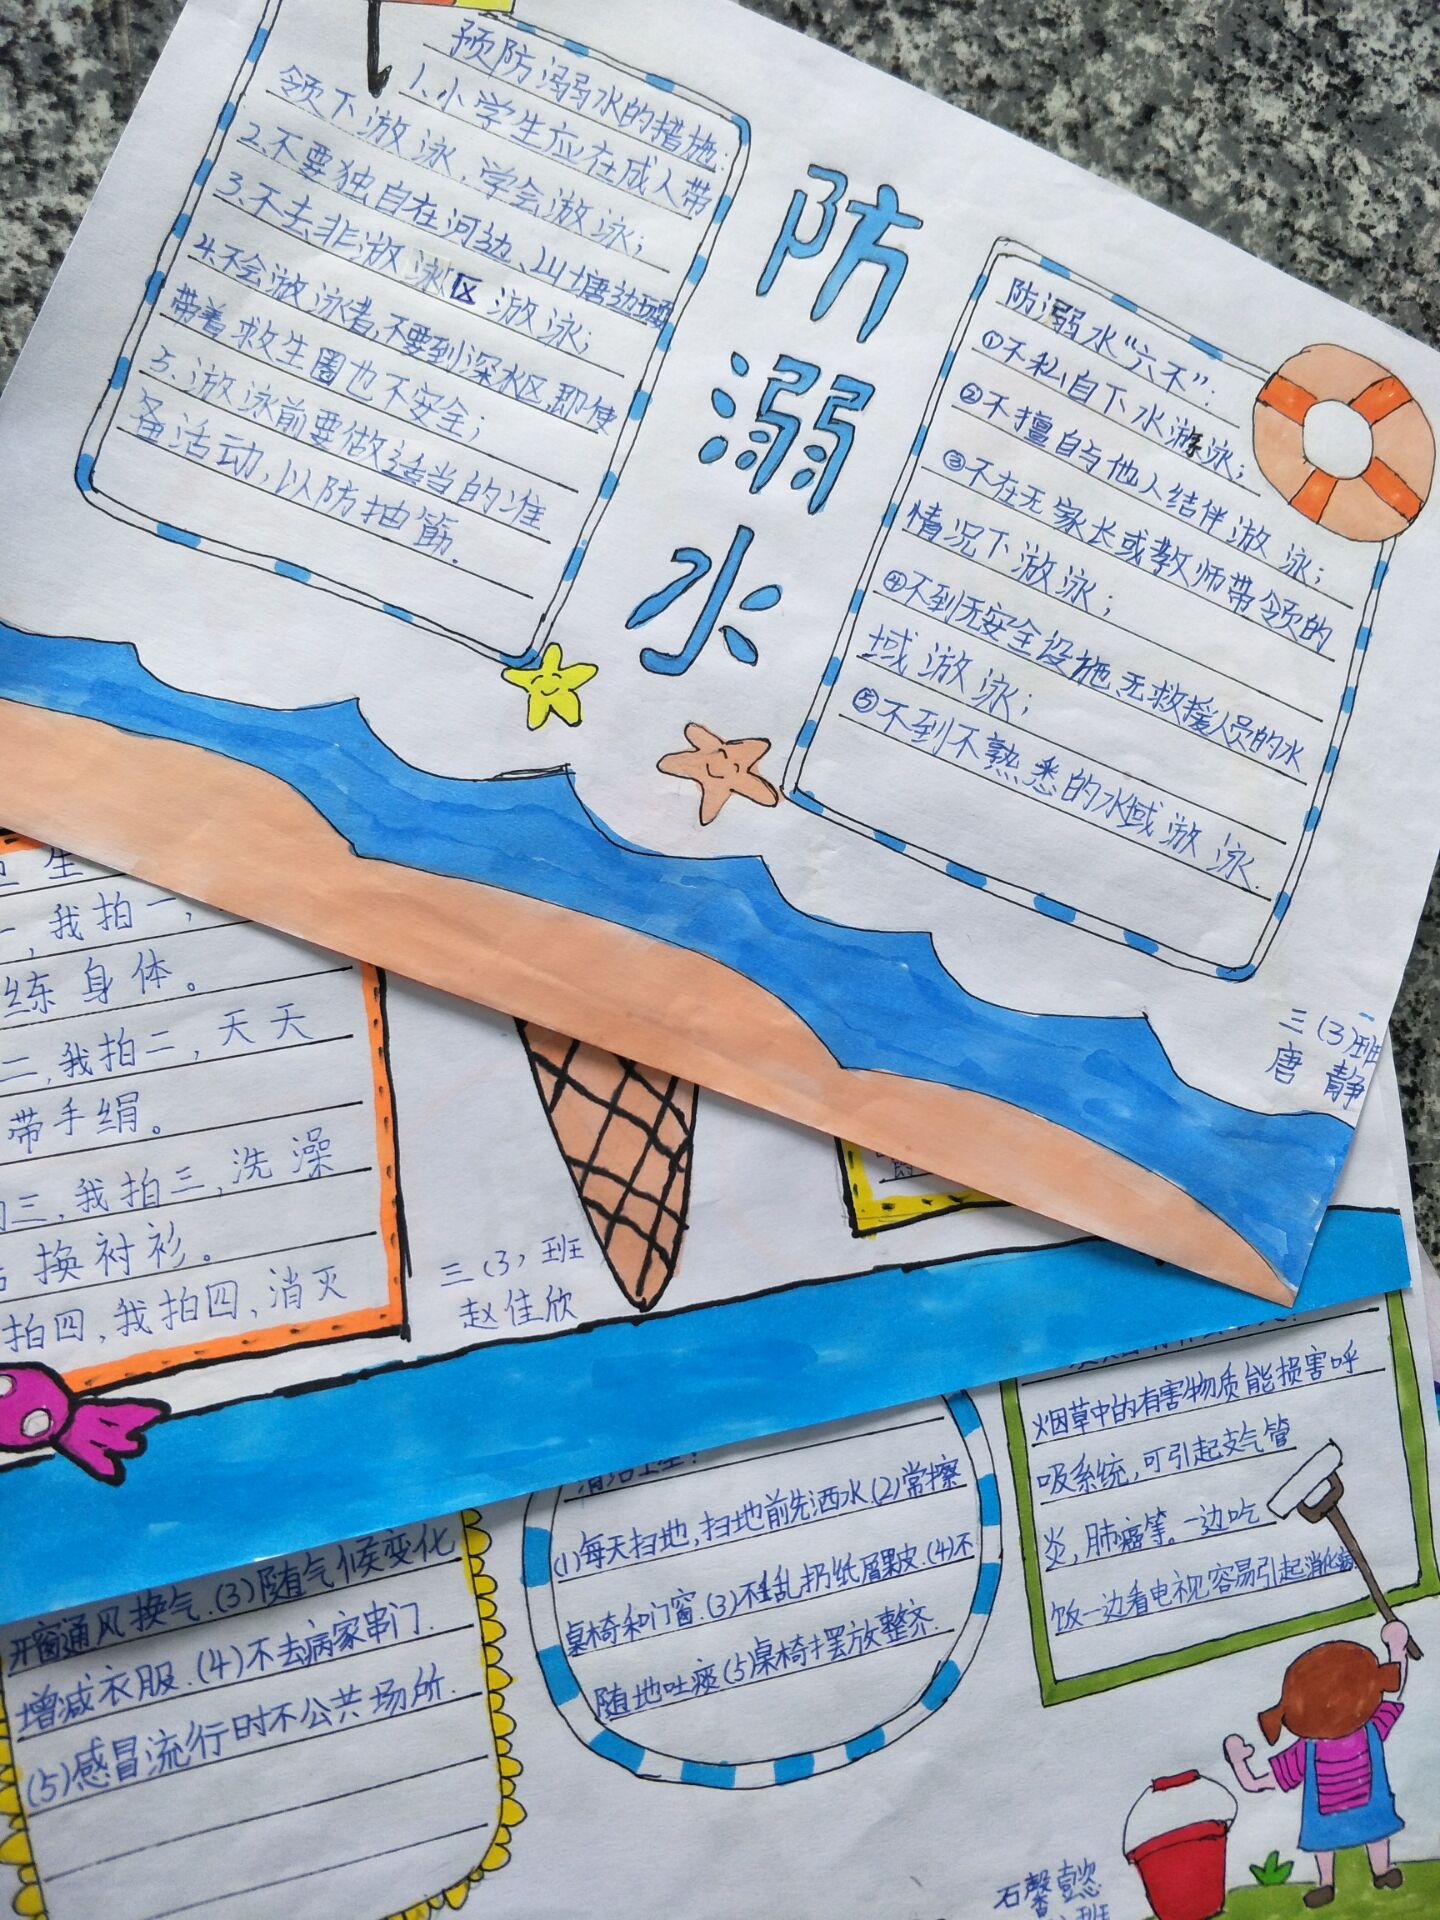 预防溺水的措施:
1.小学生应在成人带
领下游泳,学会游泳;
2.不要独自在河边、山塘边玩耍
3.不去非游泳区游泳;
4.不会游泳者,不要到深水区,即使
带着救生圈也不安全;
5.游泳前要做适当的准
备活动,以防抽筋.
防溺水
防溺水“六不”:
①不私自下水游泳;
②不擅自与他人结伴游泳;
③不在无家长或教师带领的
情况下游泳;
④不到无安全设施、无救援人员的水
域游泳;
⑤不到不熟悉的水域游泳.
三(3)班
唐静
生
,我拍一,
练身体。
二,我拍二,天天
带手绢。
三,我拍三,洗澡
换衬衫。
拍四,我拍四,消灭
三(3)班
赵佳欣
开窗通风换气.(3)随气候变化
增减衣服.(4)不去病家串门.
(5)感冒流行时不公共场所.
(1)每天扫地,扫地前先洒水.(2)常擦
桌椅和门窗.(3)不乱扔纸屑果皮.(4)不
随地吐痰(5)桌椅摆放整齐.
烟草中的有害物质能损害呼
吸系统,可引起支气管
炎,肺癌等。一边吃
饭一边看电视容易引起消化病
石馨懿
班